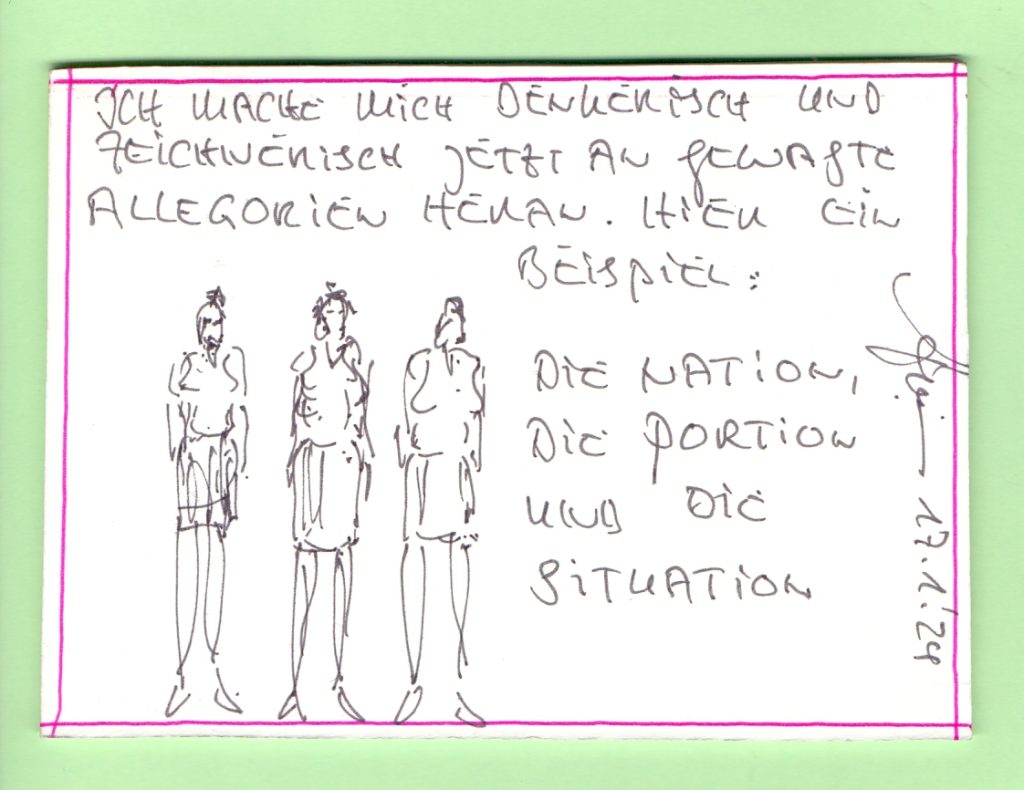 ICH MACHE MICH DENKERISCH UND
ZEICHNERISCH JETZT AN GEWAGTE
ALLEGORIEN HERAN. HIER EIN
BEISPIEL:
DIE NATION,
DIE PORTION
UND DIE
SITUATION
17.1.'24